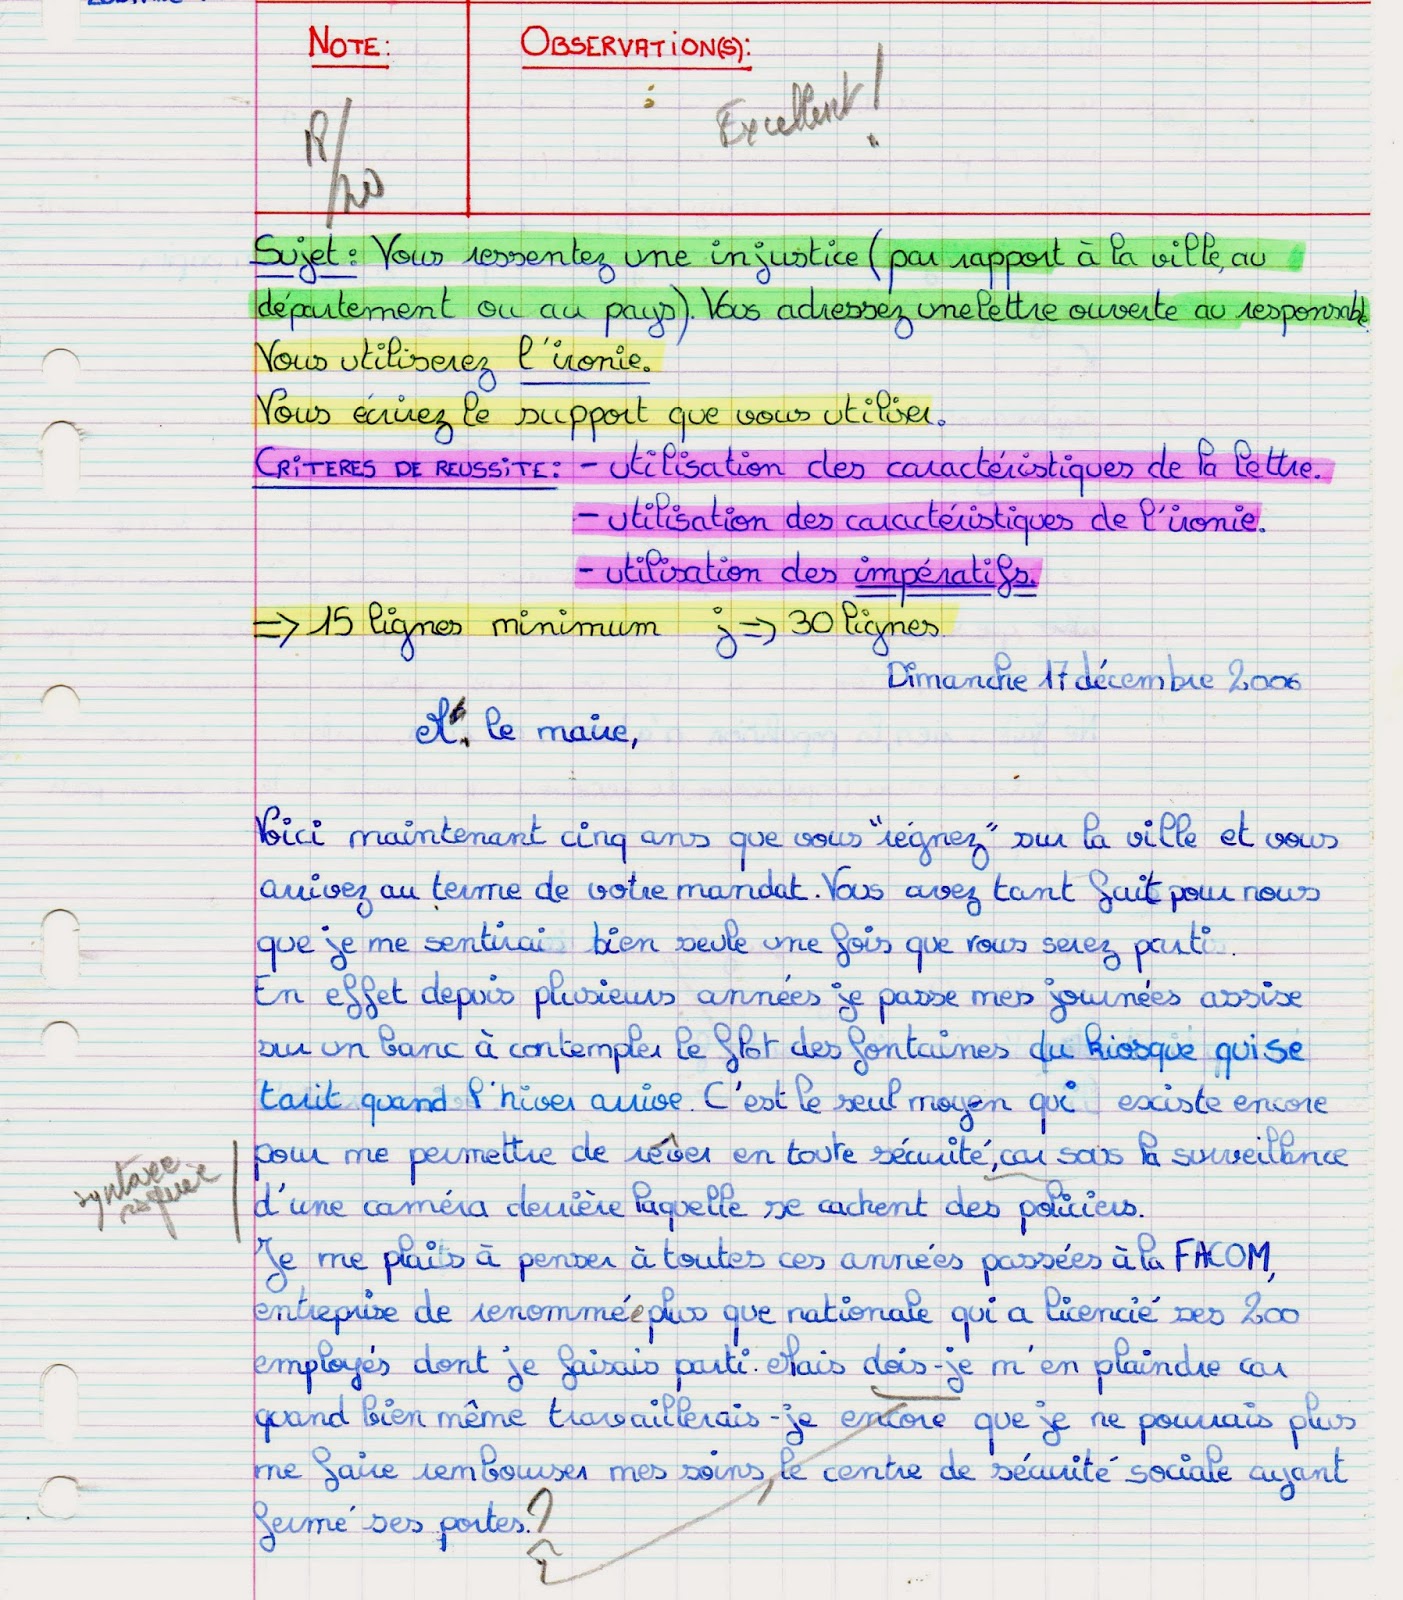 NOTE: OBSERVATION(S):
18/20 Excellent!
Sujet: Vous ressentez une injustice (par rapport à la ville, au
département ou au pays). Vous adressez une lettre ouverte au responsable.
Vous utiliserez l'ironie.
Vous écrirez le support que vous utiliser.
CRITERES DE REUSSITE: - utilisation des caractéristiques de la lettre.
- utilisation des caractéristiques de l'ironie.
- utilisation des impératifs.
=> 15 lignes minimum ; => 30 lignes.
Dimanche 17 décembre 2006
M. le maire,
Voici maintenant cinq ans que vous "régnez" sur la ville et vous
arrivez au terme de votre mandat. Vous avez tant fait pour nous
que je me sentirai bien seule une fois que vous serez parti.
En effet depuis plusieurs années je passe mes journées assise
sur un banc à contempler le flot des fontaines du kiosque qui se
tarit quand l'hiver arrive. C'est le seul moyen qui existe encore
pour me permettre de rêver en toute sécurité, car sous la surveillance
d'une caméra derrière laquelle se cachent des policiers.
syntaxe
Je me plaits à penser à toutes ces années passées à la FACOM,
entreprise de renommée plus que nationale qui a licencié ses 200
employés dont je faisais parti. Mais dois-je m'en plaindre car
quand bien même travaillerais-je encore que je ne pourrais plus
me faire rembourser mes soins, le centre de sécurité sociale ayant
fermé ses portes.?